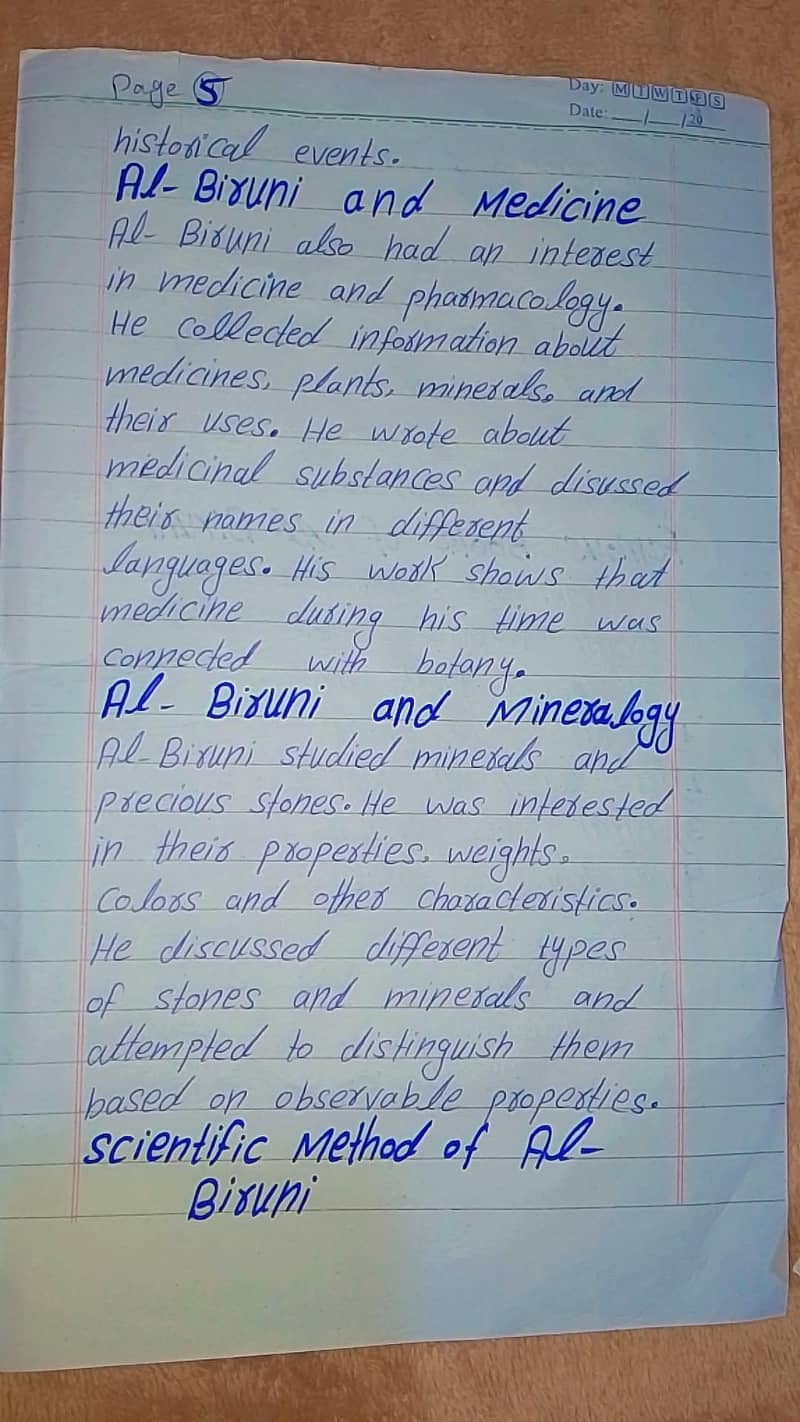 Page 5
Day: M T W T F S
Date: __/__/20__
historical events.
Al-Biruni and Medicine
Al-Biruni also had an interest
in medicine and pharmacology.
He collected information about
medicines, plants, minerals, and
their uses. He wrote about
medicinal substances and disussed
their names in different
languages. His work shows that
medicine during his time was
connected with botany.
Al-Biruni and Mineralogy
Al-Biruni studied minerals and
precious stones. He was interested
in their properties, weights,
colors and other characteristics.
He discussed different types
of stones and minerals and
attempted to distinguish them
based on observable properties.
scientific Method of Al-
Biruni